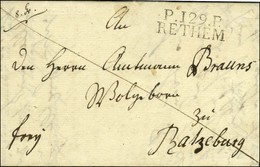 P.129.P.
RETHEM
An
den Herrn Amtmann Brauns
Wolgeborn
zu
frey
Ratzeburg